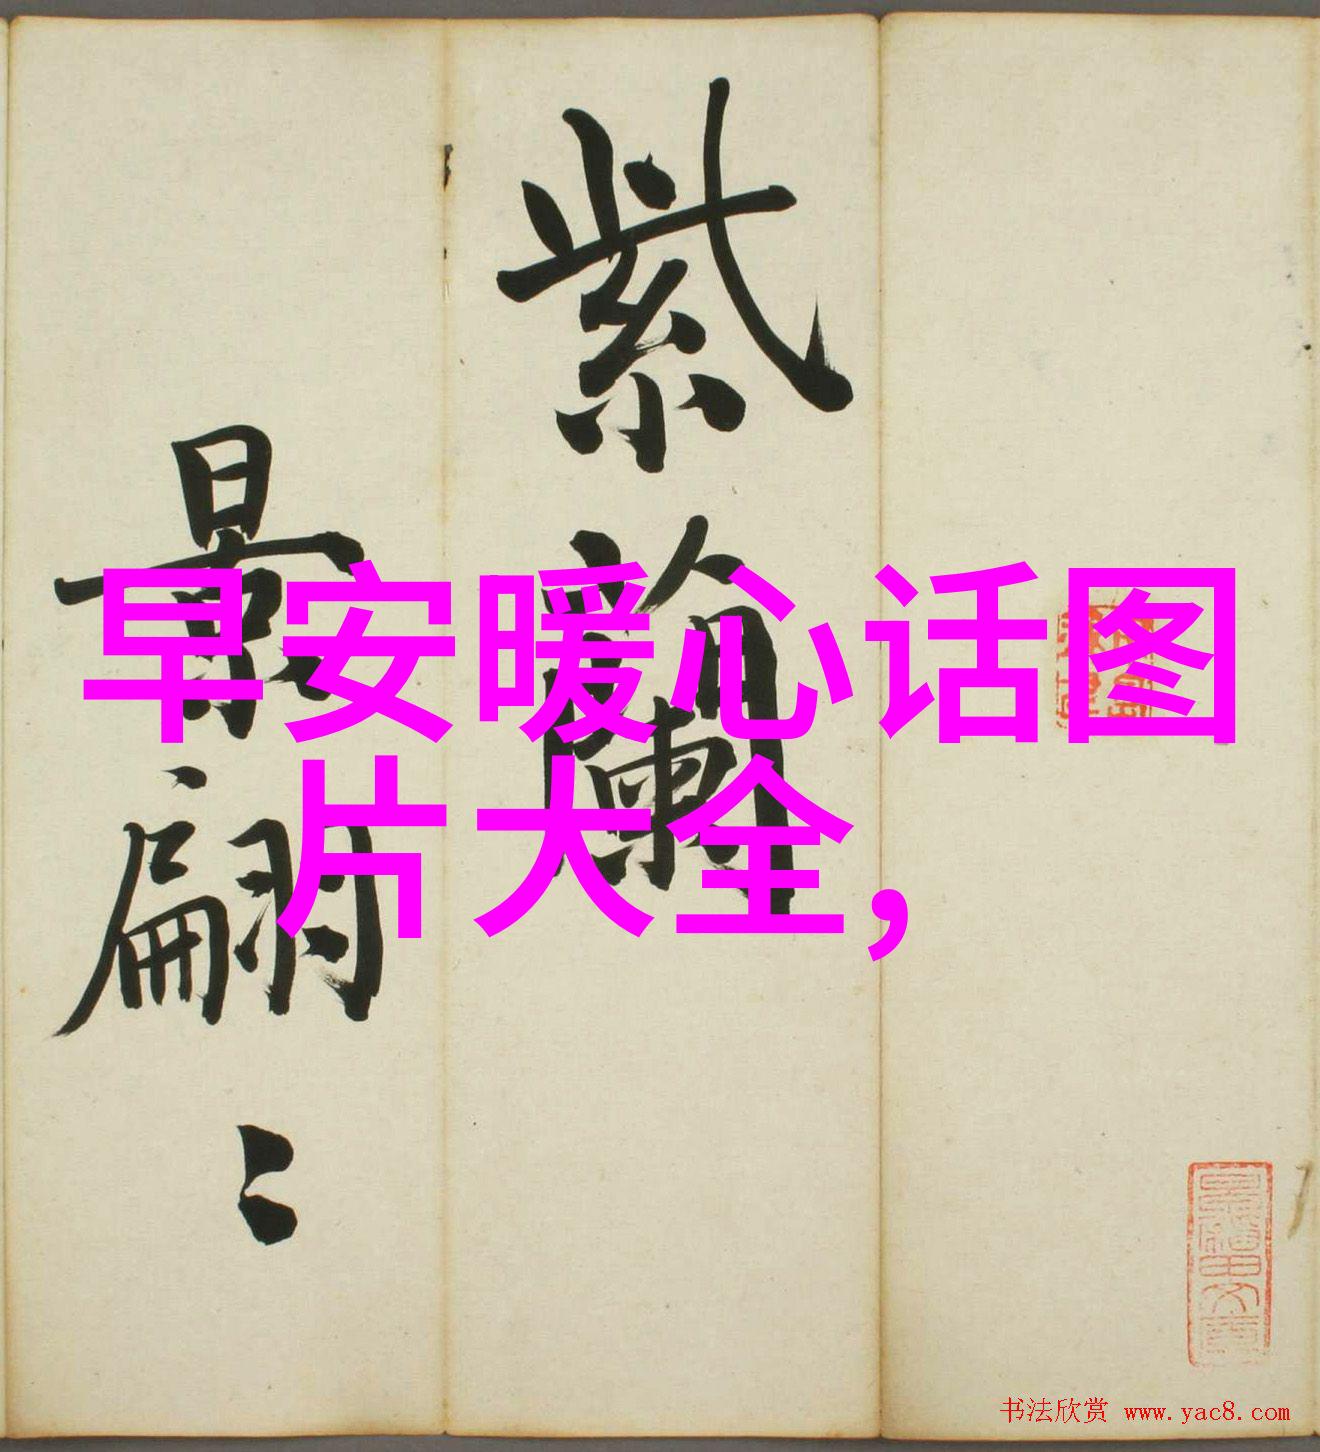 紫蘭
最翩〻
早安暖心话图
片大全,
书法欣赏 www.yac8.com